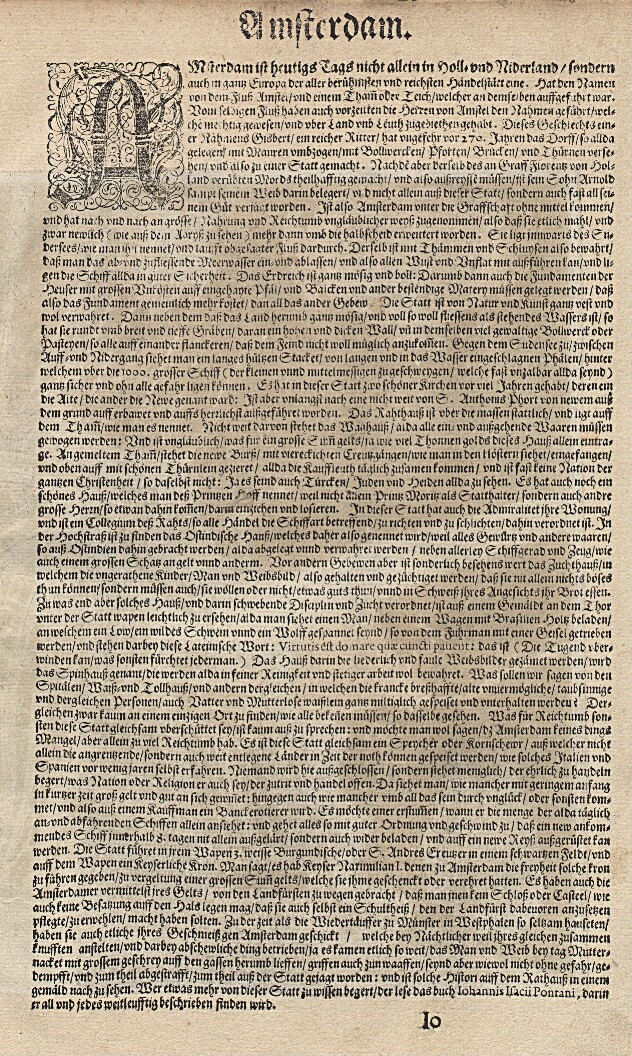 Amsterdam.
AMsterdam ist heutigs Tags nicht allein in Holl- vnd Niderland / sondern
auch in gantz Europa der aller berühmsten vnd reichsten Händelstätt eine. Hat den Namen
von dem Fluß Amstel / vnd einem Tham̄ oder Teich / welcher an demselben auffgeführt war.
Von selbigem Fluß haben auch vorzeiten die Herren von Amstel den Nahmen geführt / wel-
che mächtig gewesen / vnd vber Land vnd Leuth zugebiethen gehabt. Dieses Geschlechts ei-
ner Nahmens Gisbert / ein reicher Ritter / hat vngefehr vor 270. Jahren das Dorff / so allda
gelegen / mit Mauren vmbzogen / mit Bollwercken / Pforten / Brücken / vnd Thürnen verse-
hen / vnd also zu einer Statt gemacht. Nachdē aber derselb des an Graff Florentz von Hol-
land verübten Mords theilhafftig gemacht / vnd also außreissē müssen / ist sein Sohn Arnold
sampt seinem Weib darin belegert / vnd nicht allein auß dieser Statt / sondern auch fast all sei-
nen Güt verjagt worden. Ist also Amsterdam vnter die Graffschafft ohne mittel kommen /
vnd hat nach vnd nach an grösse / Nahrung vnd Reichtumb vngläublicher weyß zugenommen / also daß sie etlich mahl / vnd
zwar newlich (wie auß dem Abryß zu sehen) mehr dann vmb die halbscheid erweitert worden. Sie ligt inwarts des Su-
dersees / wie man ihn nennet / vnd laufft obgesagter Fluß dardurch. Derselb ist mit Thämmen vnd Schluysen also bewahrt /
daß man das ab- vnd zufliessende Meerwasser ein- vnd ablassen / vnd also allen Wust vnd Vnflat mit außführen kan / vnd li-
gen die Schiff allda in guter Sicherheit. Das Erdreich ist gantz mösig vndholl: Darumb dann auch die Fundamenten der
Heuser mit grossen Vnkosten auff eingehayte Pfäl / vnd Balcken vnd ander bestendige Matery müssen gelegt werden / daß
also das Fundament gemeinlich mehr kostet / dan all das ander Gebew. Die Statt ist von Natur vnd Kunst gantz vest vnd
wol verwahret. Dann neben dem daß das Land herumb gantz mösig / vnd voll so woll fliessens als stehendes Wassers ist / so
hat sie rundt vmb breit vnd tieffe Gräben / daran ein hohen vnd dicken Wall / vn̄ in demselben viel gewaltige Bollwerck oder
Pasteyen / so alle auff einander flanckeren / daß dem Feind nicht woll müglich anzukom̄en. Gegen dem Sudensee zu / zwischen
Auff- vnd Nidergang siehet man ein langes hültzen Stacket / von langen vnd in das Wasser eingeschlagnen Phälen / hinter
welchem vber die 1000. grosser Schiff (der kleinen vnnd mittelmessigen zugeschweygen / welche fast vnzalbar allda seynd)
gantz sicher vnd ohn alle gefahr ligen können. Es hat in dieser Statt zwo schöner Kirchen vor viel Jahren gehabt / deren ein
die Alte / die ander die Newe genant ward: Ist aber vnlangst nach eine nicht weit von S. Anthons Phort von newem auß
dem grund auff erbawet vnd auffs herrlichst außgeführet worden. Das Rahthauß ist vber die massen stättlich / vnd ligt auff
dem Tham̄ / wie man es nennet. Nicht weit darvon stehet das Waghauß / alda alle ein- vnd außgehende Waaren müssen
gewogen werden: Vnd ist vngläublich / was für ein grosse Sum̄ gelts / ja wie viel Thonnen golds dieses Hauß allein eintra-
ge. An gemeltem Tham̄ / stehet die newe Burß / mit viereckichten Creutzgängen / wie man in den Clöstern siehet / eingefangen /
vnd oben auff mit schönen Thürnlein gezieret / allda die Kauffleuth täglich zusamen kommen / vnd ist fast keine Nation der
gantzen Christenheit / so daselbst nicht: Ja es send auch Türcken / Juden vnd Heiden allda zu sehen. Es hat auch noch ein
schönes Hauß / welches man deß Printzen Hoff nennet / weil nicht allein Printz Moritz als Statthalter / sondern auch andre
grosse Herrn / so etwan dahin kom̄en / darin einziehen vnd losieren. In dieser Statt hat auch die Admiralitet ihre Wonung /
vnd ist ein Collegium deß Rahts / so alle Händel die Schiffart betreffend / zu richten vnd zu schlichten / dahin verordnet ist. In
der Hochstraß ist zu finden das Ostindische Hauß / welches daher also genennet wird / weil alles Gewürtz vnd andre waaren /
so auß Ostindien dahin gebracht werden / alda abgelegt vnnd verwahret werden / neben allerley Schiffgerad vnd Zeug / wie
auch einem grossen Schatz an gelt vnnd anderm. Vor andern Gebewen aber ist sonderlich besehens wert das Zuchthauß / in
welchem die vngerathene Kinder / Man vnd Weibsbild / also gehalten vnd gezüchtiget werden / daß sie nit allein nichts böses
thun können / sondern müssen auch / sie wöllen oder nicht / etwas guts thun / vnnd in Schweiß ihres Angesichts ihr Brot essen.
Zu was end aber solches Hauß / vnd darin schwebende Disciplin vnd Zucht verordnet / ist auß einem Gemäldt an dem Thor
vnter der Statt wapen leichtlich zu ersehen / alda man siehet einen Man / neben einem Wagen mit Brasilien Holtz beladen /
an welchem ein Low / ein wildes Schwein vnnd ein Wolff gespannet seynd / so von dem Fuhrman mit einer Geisel getrieben
werden / vnd stehen darbey diese Lateinische Wort: Virtutis est domare quæ cuncti pavent: das ist (Die Tugend vber-
winden kan / was sonsten fürchtet jederman.) Das Hauß darin die liederlich vnd faule Weibsbilder gezämet werden / wird
das Spinhauß genant / die werden alda in feiner Reinigkeit vnd stetiger arbeit wol bewahret. Was sollen wir sagen von den
Spitälen / Waiß- vnd Tollhauß / vnd andern dergleichen / in welchen die krancke breßhaffte / alte vnuermögliche / taubsinnige
vnd dergleichen Personen / auch Vatter vnd Mutterlose waißlein gantz miltiglich gespeiset vnd vnterhalten werden? Der-
gleichen zwar kaum an einem einzigen Ort zu finden / wie alle bekeñen müssen / so dasselbe gesehen. Was für Reichtumb son-
sten diese Statt gleichsam überschüttet sey / ist kaum auß zu sprechen / vnd möchte man wol sagen / dz Amsterdam keines dings
Mangel / aber allein zu viel Reichtumb hab. Es ist diese Statt gleichsam ein Speycher oder Kornschewr / auß welcher nicht
allein die angrentzende / sondern auch weit entlegene Länder in Zeit der noth können gespeiset werden / wie solches Italien vnd
Spanien vor wenig jaren selbst erfahren. Niemand wird hie außgeschlossen / sondern stehet meniglich / der ehrlich zu handeln
begert / was Nation oder Religion er auch sey / der zutrit vnd handel offen. Da siehet man / wie mancher mit geringem anfang
in kurtzer zeit groß gelt vnd gut an sich gewinet: hingegen auch wie mancher vmb all das sein durch vnglück / oder sonsten kom-
met / vnd also auß einem Kauffman ein Banckerotierer wird. Es möchte einer erstum̄en / wann er die menge der alda täglich
an- vnd abfahrenden Schiffen allein ansiehet: vnd gehet alles so mit guter Ordnung vnd geschwind zu / daß ein new ankom-
mendes Schiff innerhalb 8. tagen nit allein außgelärt / sondern auch wider beladen / vnd auff ein newe Reyß außgerüstet kan
werden. Die Statt führet in jrem Wapen 3. weisse Burgundische / oder S. Andres Creutzer in einem schwartzen Feldt / vnd
auff dem Wapen ein Keyserliche Kron. Man sagt / es hab Keyser Maximilian I. denen zu Amsterdam die freyheit solche kron
zu führen gegeben / zu vergeltung einer grossen Sum̄ gelts / welche sie ihme geschenckt oder verehret hatten. Es haben auch die
Amsterdamer vermittelst jres Gelts / von den Landfürsten zu wegen gebracht / daß man jnen kein Schloß oder Casteel / wie
auch keine Besatzung auff den Hals legen mag / daß sie auch selbst ein Schultheiß / den der Landfürst dabevoren anzusetzen
pflegte / zu erwehlen / macht haben solten. Zu der zeit als die Wiedertäuffer zu Münster in Westphalen so seltzam hauseten /
haben sie auch etliche ihres Geschmeiß gen Amsterdam geschickt / welche bey Nächtlicher weil ihres gleichen zusammen
knufften anstelten / vnd darbey abschewliche ding betrieben / ja es kamen etlich so weit / das Man vnd Weib bey tag Mutter-
nacket mit grossem geschrey auff den gassen herumb lieffen / griffen auch zun waaffen / seynd aber wiewol nicht ohne gefahr / ge-
dempfft / vnd zum theil abgestrafft / zum theil auß der Statt gejagt worden: vnd ist solche Histori auff dem Rathauß in einem
gemäld nach zu sehen. Wer etwas mehr von dieser Statt zu wissen begert / der lese das buch Iohannis Isacii Pontani, darin
er all vnd jedes weitleufftig beschrieben finden wird.
Io